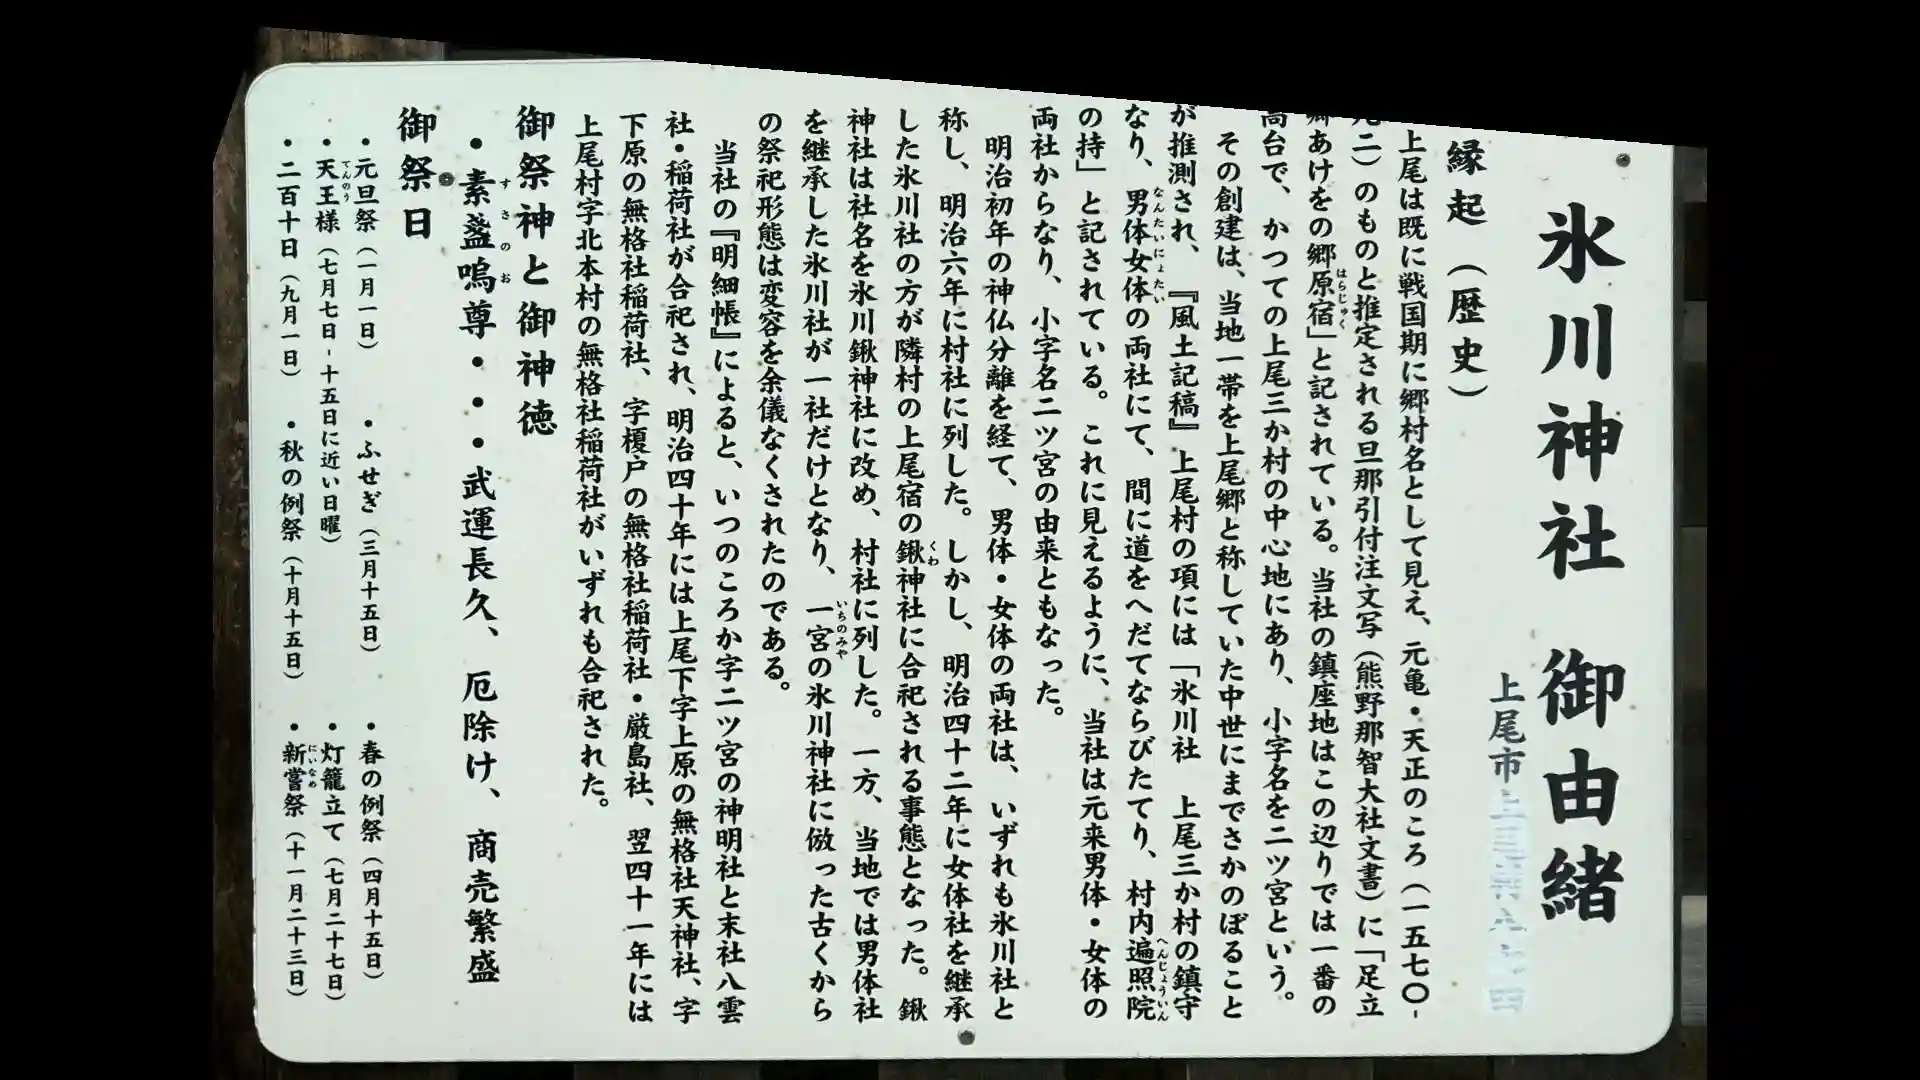 氷川神社 御由緒
上尾市
縁起（歴史）
上尾は既に戦国期に郷村名として見え、元亀・天正のころ（一五七〇-
二）のものと推定される旦那引付注文写（熊野那智大社文書）に「足立
郷あけをの郷原宿」と記されている。当社の鎮座地はこの辺りでは一番の
高台で、かつての上尾三か村の中心地にあり、小字名を二ツ宮という。
その創建は、当地一帯を上尾郷と称していた中世にまでさかのぼること
が推測され、『風土記稿』上尾村の項には「氷川社 上尾三か村の鎮守
なり、男体女体の両社にて、間に道をへだてならびたてり、村内遍照院
の持」と記されている。これに見えるように、当社は元来男体・女体の
両社からなり、小字名二ツ宮の由来ともなった。
明治初年の神仏分離を経て、男体・女体の両社は、いずれも氷川社と
称し、明治六年に村社に列した。しかし、明治四十二年に女体社を継承
した氷川社の方が隣村の上尾宿の鍬神社に合祀される事態となった。鍬
神社は社名を氷川鍬神社に改め、村社に列した。一方、当地では男体社
を継承した氷川社が一社だけとなり、一宮の氷川神社に倣った古くから
の祭祀形態は変容を余儀なくされたのである。
当社の『明細帳』によると、いつのころか字二ツ宮の神明社と末社八雲
社・稲荷社が合祀され、明治四十年には上尾下字上原の無格社天神社、字
下原の無格社稲荷社、字榎戸の無格社稲荷社・厳島社、翌四十一年には
上尾村字北本村の無格社稲荷社がいずれも合祀された。
御祭神と御神徳
・素盞嗚尊・・・武運長久、厄除け、商売繁盛
御祭日
・元旦祭（一月一日） ・ふせぎ（三月十五日） ・春の例祭（四月十五日）
・天王様（七月七日-十五日に近い日曜） ・灯籠立て（七月二十七日）
・二百十日（九月一日） ・秋の例祭（十月十五日） ・新嘗祭（十一月二十三日）